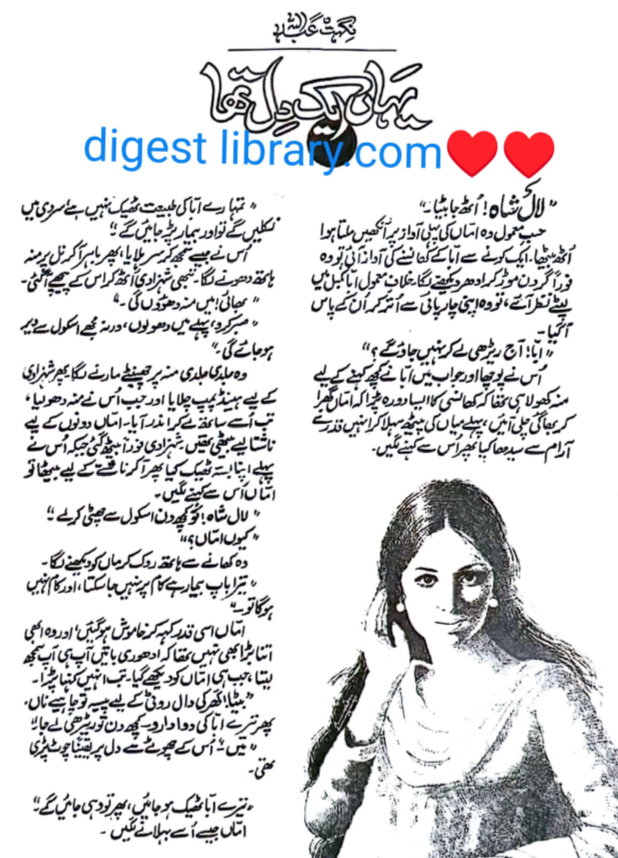 نگہت عبداللہ
یہاں ایک دل تھا
digest library.com
"لال شاہ! اُٹھ جا بیٹا۔"
حسبِ معمول وہ اماں کی پہلی آواز پر آنکھیں ملتا ہوا
اُٹھ بیٹھا۔ ایک کونے سے ابا کے کھانسنے کی آواز آئی تو وہ
فوراً گردن موڑ کر ادھر دیکھنے لگا۔ خلافِ معمول ابا کمبل میں
لپٹے نظر آئے، تو وہ اپنی چارپائی سے اُتر کر اُن کے پاس
آگیا۔
"ابا! آج ریڑھی لے کر نہیں جاؤ گے؟"
اُس نے پوچھا اور جواب میں ابا نے کچھ کہنے کے لیے
منہ کھولا ہی تھا کہ کھانسی کا ایسا دورہ پڑا کہ اماں گھبرا
کر بھاگی چلی آئیں، پہلے میاں کی پیٹھ سہلا کر انہیں قدرے
آرام سے سیدھا کیا پھر اُس سے کہنے لگیں۔
"تمہارے ابا کی طبیعت ٹھیک نہیں ہے، سردی میں
نکلیں گے تو اور بیمار پڑ جائیں گے۔"
اُس نے جیسے سمجھ کر سر ہلایا، پھر باہر آ کر نل پر منہ
ہاتھ دھونے لگا۔ ننھی شہزادی اُٹھ کر اُس کے پیچھے آ گئی۔
"بھائی! میں منہ دھوؤں گی۔"
"صبر کرو، پہلے میں دھو لوں، ورنہ مجھے اسکول سے دیر
ہو جائے گی۔"
وہ جلدی جلدی منہ پر چھینٹے مارنے لگا پھر شہزادی
کے لیے ہینڈ پمپ چلایا اور جب اُس نے منہ دھو لیا،
تب اُسے ساتھ لے کر اندر آیا۔ اماں دونوں کے لیے
ناشتا لیے بیٹھی تھیں۔ شہزادی فوراً بیٹھ گئی جبکہ اُس نے
پہلے اپنا بستہ ٹھیک کیا پھر آ کر ناشتے کے لیے بیٹھا تو
اماں اُس سے کہنے لگیں۔
"لال شاہ! تُو کچھ دن اسکول سے چھٹی کر لے۔"
"کیوں اماں؟"
وہ کھانے سے ہاتھ روک کر ماں کو دیکھنے لگا۔
"تیرا باپ بیمار ہے کام پر نہیں جا سکتا، اور کام نہیں
ہو گا تو۔"
اماں اسی قدر کہہ کر خاموش ہو گئیں، اور وہ ابھی
اتنا بڑا بھی نہیں تھا کہ ادھوری باتیں آپ ہی آپ سمجھ
لیتا، جب ہی اماں کو دیکھے گیا۔ تب انہیں کہنا پڑا۔
"بیٹا! گھر کی دال روٹی کے لیے پیسہ تو چاہیے ناں،
پھر تیرے ابا کی دوا دارو۔ کچھ دن تو ریڑھی لے جا۔"
"میں۔" اُس کے چھوٹے سے دل پر یقیناً چوٹ پڑی
تھی۔
"تیرے ابا ٹھیک ہو جائیں، پھر تو وہی جائیں گے۔"
اماں جیسے اُسے بہلانے لگیں۔